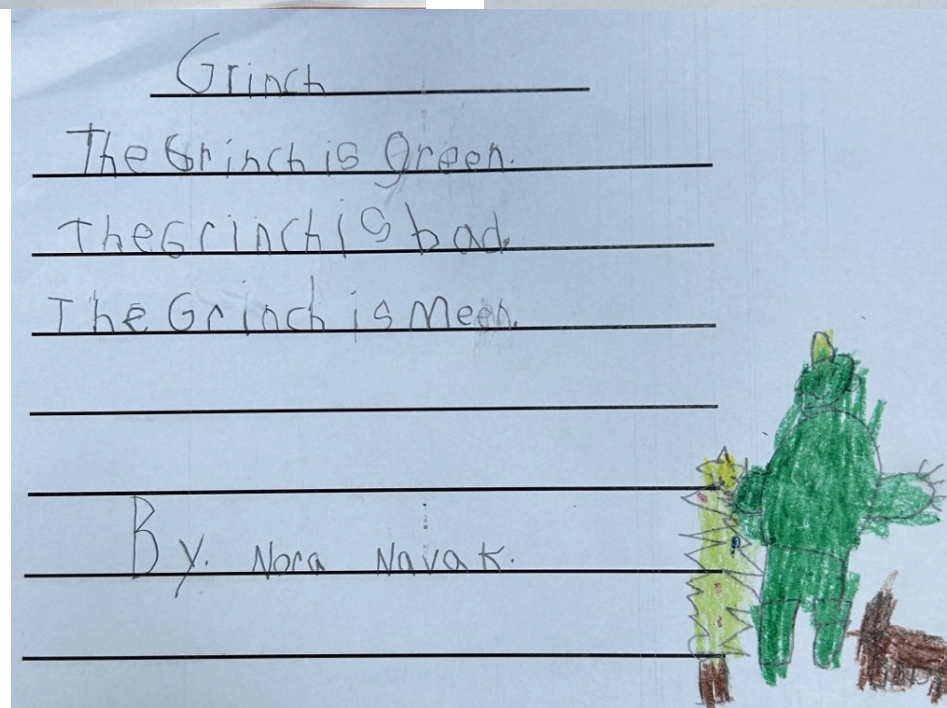 Grinch
The Grinch is green.
The Grinch is bad.
The Grinch is Meen.
By. Nora Navak.